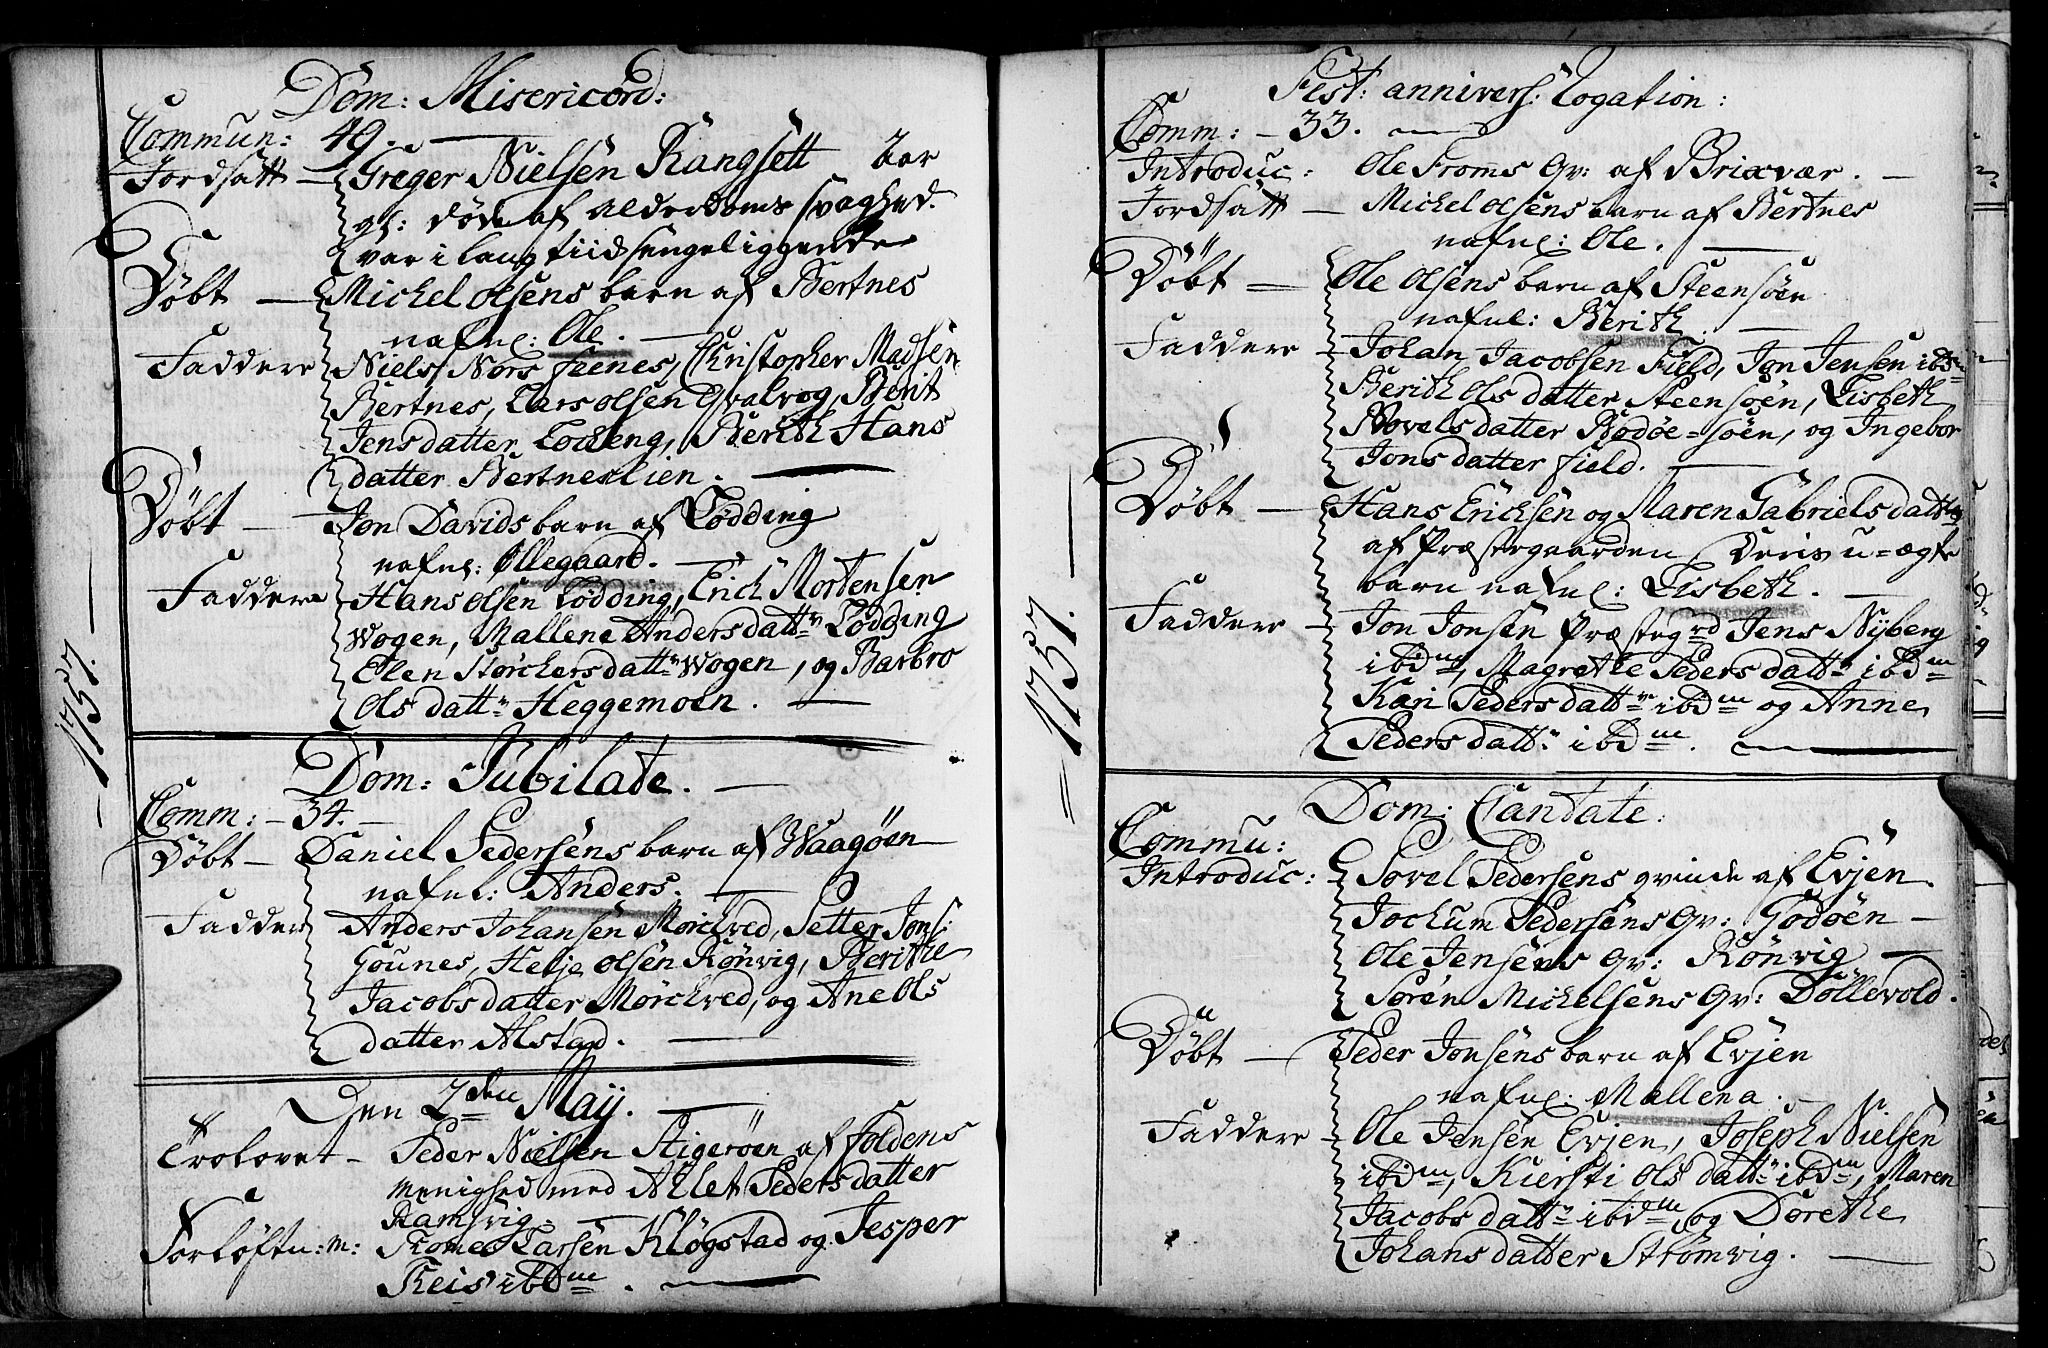 Dom: Misericord:
Commun: 49.
Jordsatt - Greger Nielsen Rangsett aar
gl: døde af alderdoms svaghed.
var i lang tiid sengeliggende
Døbt - Michel Olsens barn af Bertnes
nafnl: Ole.
Faddere Niels Nors feenes, Christopher Madsen
Bertnes, Lars Olsen Hvalvog, Berit
Jensdatter Løcheng, Berith Hans
datter Bertneslien.
Døbt - Jon Davids barn af Lødding
nafnl: Ollegaard.
Faddere Hans Olsen Lødding, Erich Mortensen
Wogen, Mallene Andersdattr Lødding
Elen Størchersdattr Wogen, og Barbro
Olsdattr Heggemoen.
1757.
Dom: Jubilate.
Comm: - 34. -
Døbt - Daniel Pedersens barn af Waagøen
nafnl: Anders.
Faddere Anders Johansen Mørchved, Petter Jons:
Gounes, Helje Olsen Rønvig, Berithe
Jacobsdatter Mørchved, og Ane Ols
datter Alstad.
Den 2den Maij.
Trolovet - Peder Nielsen Stigerøen af Foldens
menighed med Ahlet Pedersdatter
Ramsvig.
Forløftn: m: Thomes Larsen Kløgstad og Jesper
Theis ibdm.
Fest: annivers: Rogation:
Comm: - 33.
Introduc: Ole Fromms Qv: af Brixvær.
Jordsatt - Michel Olsens barn af Bertnes
nafnl: Ole.
Døbt - Ole Olsens barn af Steensøen
nafnl: Berith.
Faddere - Johan Jacobsen Field, Jon Jensen ibdm
Berith Olsdatter Steensøen, Lisbeth
Povelsdatter Bodøe-søen, og Ingebor
Jonsdatter field.
Døbt - Hans Ericksen og Maren Gabrielsdattr
af Præstegaarden Deris u-ægte
barn nafnl: Lisbeth.
Faddere - Jon Jonsen Præstegrd Jens Nyberg
ibdm, Magrethe Pedersdattr ibdm
Kari Pedersdattr ibdm og Anne
Pedersdattr ibdm.
= 1757.
Dom: Cantate:
Commu:
Introduc: - Povel Pedersens qvinde af Evjen.
Jochum Pedersens Qv: Godøen -
Ole Jensens Qv: Rønvig
Søren Michelsens Qv: Döllevold.
Døbt - Peder Jonsens barn af Evjen
nafnl: Mallena.
Faddere - Ole Jensen Evjen, Joseph Nielsen
ibdm, Kiersti Olsdattr ibdm, Maren
Jacobsdattr ibdm, og Dorethe
Johansdatter Strømvig.